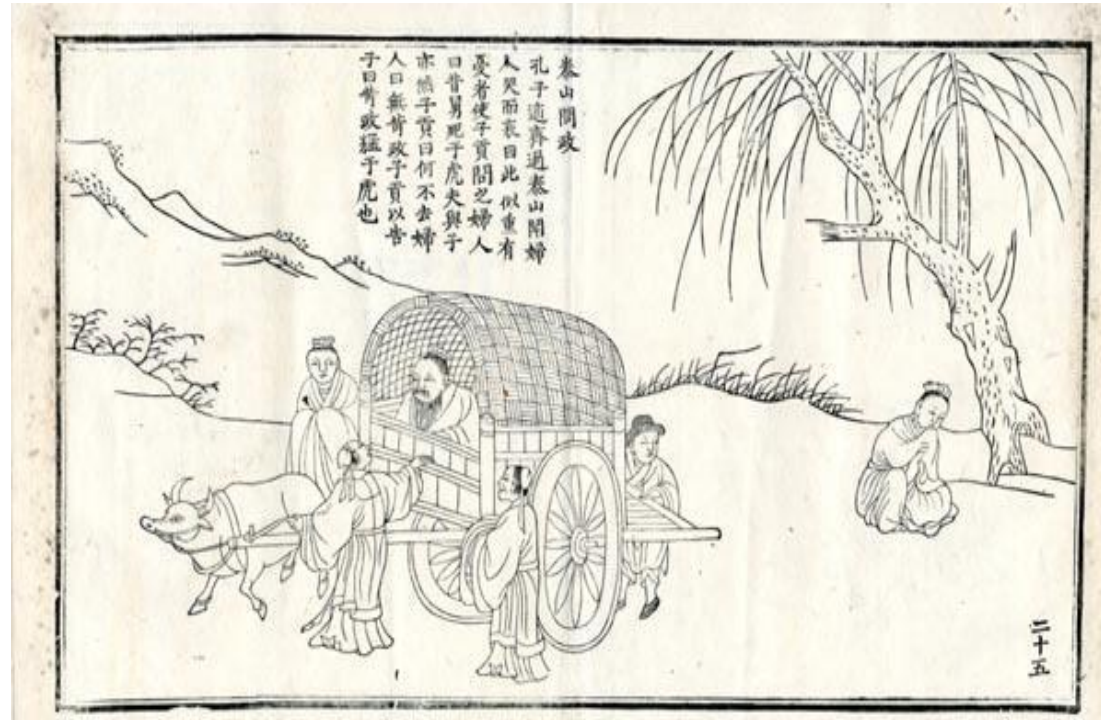 泰山問政
孔子適齊過泰山聞婦
人哭而哀曰此似重有
憂者使子貢問之婦人
曰昔舅死于虎夫與子
亦然子貢曰何不去婦
人曰無苛政子貢以告
子曰苛政猛于虎也
二十五